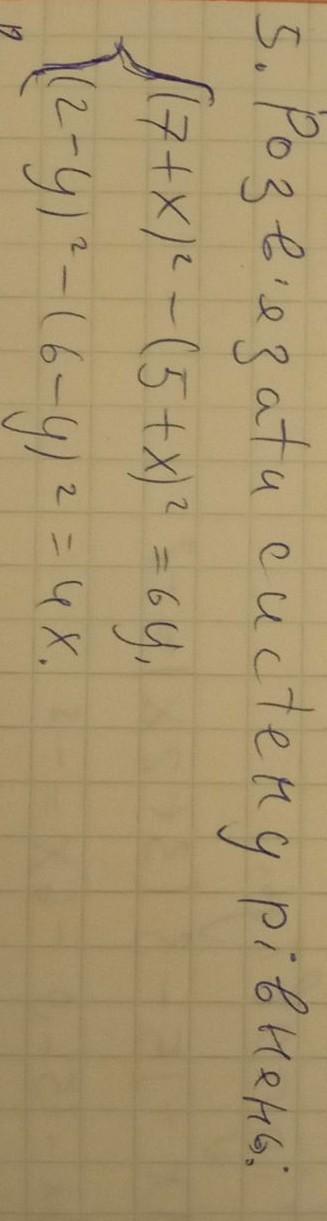 5. Розв'язати систему рівнянь:
(7+x)² – (5+x)² = 6y,
(2–y)² – (6–y)² = 4x.